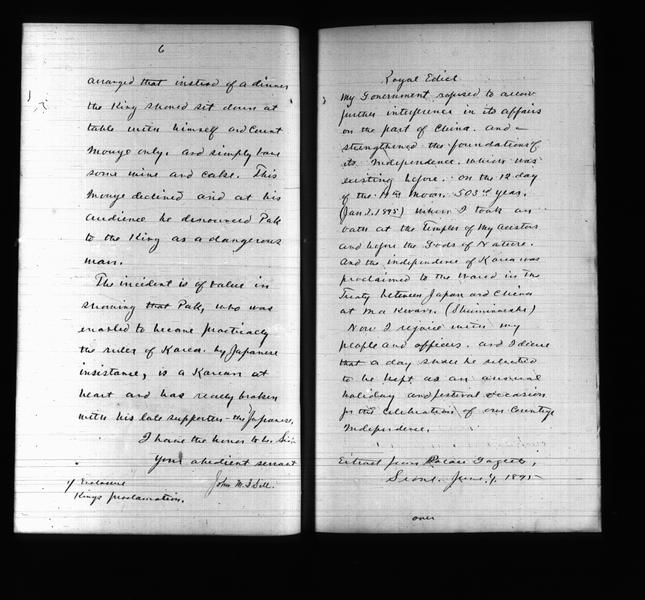 6
arranged that instead of a dinner
the King should sit down at
table with himself and Count
Inouye only, and simply have
some wine and cake. This
Inouye declined and at his
audience he denounced Pak
to the King as a dangerous
man.
The incident is of value in
showing that Pak, who was
enabled to become practically
the ruler of Korea by Japanese
insistance, is a Korean at
heart and has really broken
with his late supporters - the Japanese.
I have the honor to be, Sir:
Your obedient servant
John M. B. Sill.
Enclosure
Kings proclamation.
Royal Edict
My Government refused to allow
further interference in its affairs
on the part of China. and -
strengthened the foundation of
its Independence. which was
existing before. on the 12 day
of the 11th moon. 503rd year.
(Jan 7. 1895) when I took an
oath at the Temples of my Ancestors
and before the Gods of Nature.
And the independence of Korea was
proclaimed to the world in the
Treaty between Japan and China
at Ma Kwan. (Shimonoseki)
Now I rejoice with my
people and officers. and I desire
that a day shall be selected
to be kept as an annual
holiday and festival occasion
for the celebration of our Country's
Independence.
Extract from Palace Gazette,
Seoul. June 7, 1895
over